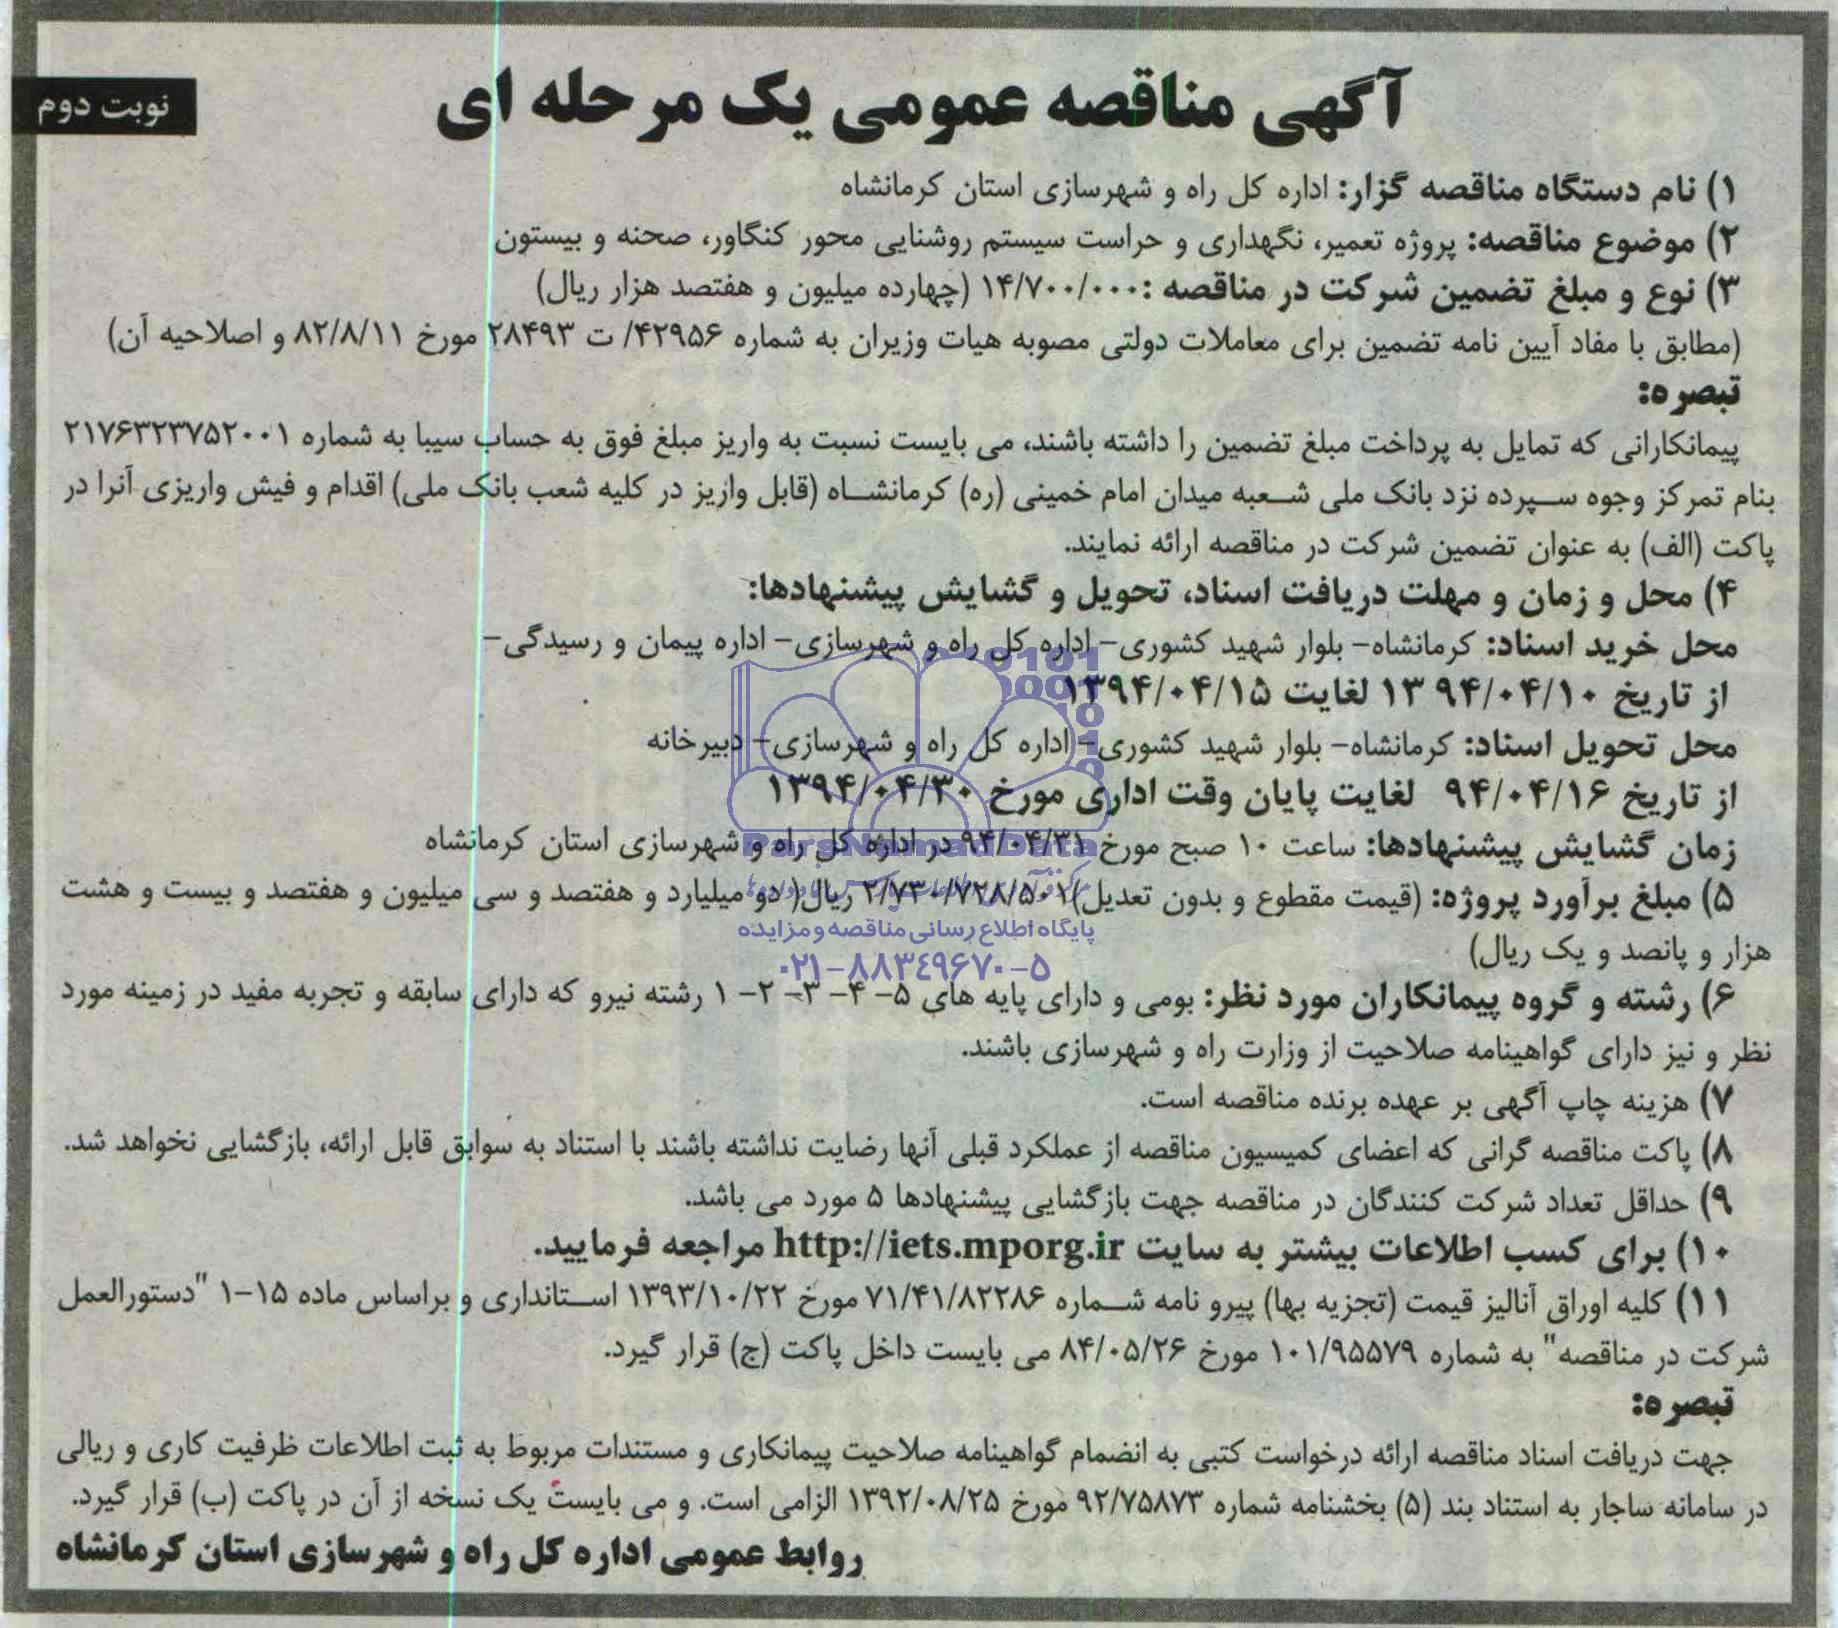 نوبت دوم
آگهی مناقصه عمومی یک مرحله ای
۱) نام دستگاه مناقصه گزار: اداره کل راه و شهرسازی استان کرمانشاه
۲) موضوع مناقصه: پروژه تعمیر، نگهداری و حراست سیستم روشنایی محور کنگاور، صحنه و بیستون
۳) نوع و مبلغ تضمین شرکت در مناقصه :۱۴/۷۰۰/۰۰۰ (چهارده میلیون و هفتصد هزار ریال)
(مطابق با مفاد آیین نامه تضمین برای معاملات دولتی مصوبه هیات وزیران به شماره ۴۲۹۵۶/ ت ۲۸۴۹۳ مورخ ۸۲/۸/۱۱ و اصلاحیه آن)
تبصره:
پیمانکارانی که تمایل به پرداخت مبلغ تضمین را داشته باشند، می بایست نسبت به واریز مبلغ فوق به حساب سیبا به شماره ۲۱۷۶۳۲۳۷۵۲۰۰۱
بنام تمرکز وجوه سپرده نزد بانک ملی شعبه میدان امام خمینی (ره) کرمانشاه (قابل واریز در کلیه شعب بانک ملی) اقدام و فیش واریزی آنرا در
پاکت (الف) به عنوان تضمین شرکت در مناقصه ارائه نمایند.
۴) محل و زمان و مهلت دریافت اسناد، تحویل و گشایش پیشنهادها:
محل خرید اسناد: کرمانشاه- بلوار شهید کشوری- اداره کل راه و شهرسازی- اداره پیمان و رسیدگی-
از تاریخ ۱۳۹۴/۰۴/۱۰ لغایت ۱۳۹۴/۰۴/۱۵
محل تحویل اسناد: کرمانشاه- بلوار شهید کشوری- اداره کل راه و شهرسازی- دبیرخانه
از تاریخ ۹۴/۰۴/۱۶ لغایت پایان وقت اداری مورخ ۱۳۹۴/۰۴/۳۰
زمان گشایش پیشنهادها: ساعت ۱۰ صبح مورخ ۹۴/۰۴/۳۱ در اداره کل راه و شهرسازی استان کرمانشاه
ParsNamadData
۵) مبلغ برآورد پروژه: (قیمت مقطوع و بدون تعدیل)۲/۷۳۰/۷۲۸/۵۰۱ ریال( دو میلیارد و هفتصد و سی میلیون و هفتصد و بیست و هشت
پایگاه اطلاع رسانی مناقصه و مزایده
هزار و پانصد و یک ریال)
۰۲۱-۸۸۳۴۹۶۷۰-۵
۶) رشته و گروه پیمانکاران مورد نظر: بومی و دارای پایه های ۵- ۴- ۳- ۲- ۱ رشته نیرو که دارای سابقه و تجربه مفید در زمینه مورد
نظر و نیز دارای گواهینامه صلاحیت از وزارت راه و شهرسازی باشند.
۷) هزینه چاپ آگهی بر عهده برنده مناقصه است.
۸) پاکت مناقصه گرانی که اعضای کمیسیون مناقصه از عملکرد قبلی آنها رضایت نداشته باشند با استناد به سوابق قابل ارائه، بازگشایی نخواهد شد.
۹) حداقل تعداد شرکت کنندگان در مناقصه جهت بازگشایی پیشنهادها ۵ مورد می باشد.
۱۰) برای کسب اطلاعات بیشتر به سایت http://iets.mporg.ir مراجعه فرمایید.
۱۱) کلیه اوراق آنالیز قیمت (تجزیه بها) پیرو نامه شماره ۷۱/۴۱/۸۲۲۸۶ مورخ ۱۳۹۳/۱۰/۲۲ استانداری و براساس ماده ۱۵-۱ "دستورالعمل
شرکت در مناقصه" به شماره ۱۰۱/۹۵۵۷۹ مورخ ۸۴/۰۵/۲۶ می بایست داخل پاکت (ج) قرار گیرد.
تبصره:
جهت دریافت اسناد مناقصه ارائه درخواست کتبی به انضمام گواهینامه صلاحیت پیمانکاری و مستندات مربوط به ثبت اطلاعات ظرفیت کاری و ریالی
در سامانه ساجار به استناد بند (۵) بخشنامه شماره ۹۲/۷۵۸۷۳ مورخ ۱۳۹۲/۰۸/۲۵ الزامی است. و می بایست یک نسخه از آن در پاکت (ب) قرار گیرد.
روابط عمومی اداره کل راه و شهرسازی استان کرمانشاه